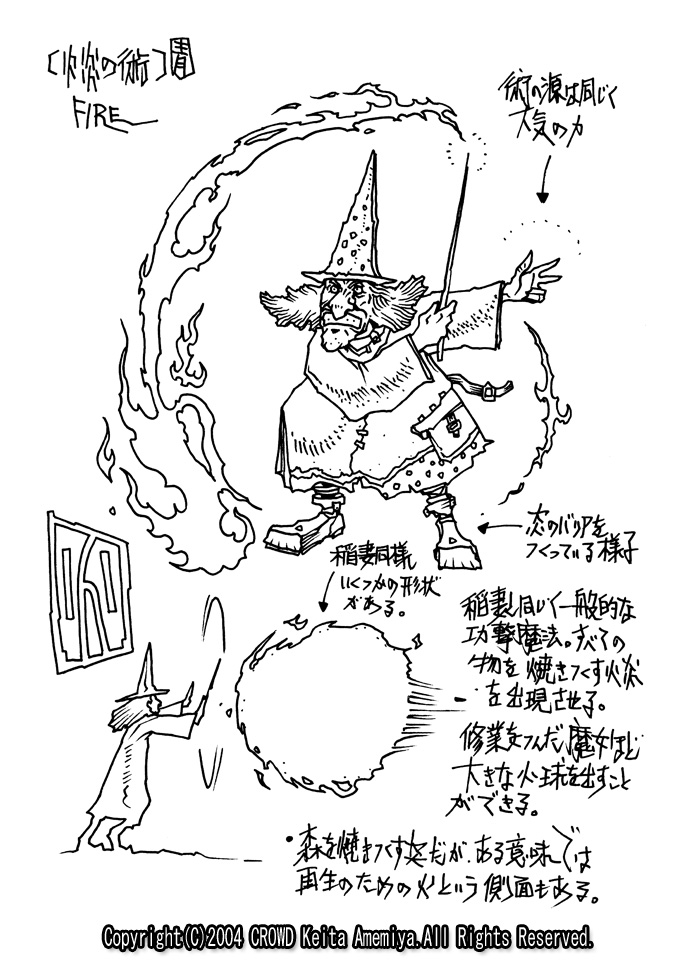 [火炎の術]
FIRE
術の源は同じく
大気の力
炎のバリアを
つくっている様子
稲妻同様
いくつかの形状
がある。
稲妻と同じく一般的な
攻撃魔法。すべての
物を焼きつくす火炎
を出現させる。
修業をつんだ魔女ほど
大きな火球を出すこと
ができる。
・森を焼きつくす炎だが、ある意味では
再生のための火という側面もある。
Copyright(C)2004 CROWD Keita Amemiya.All Rights Reserved.